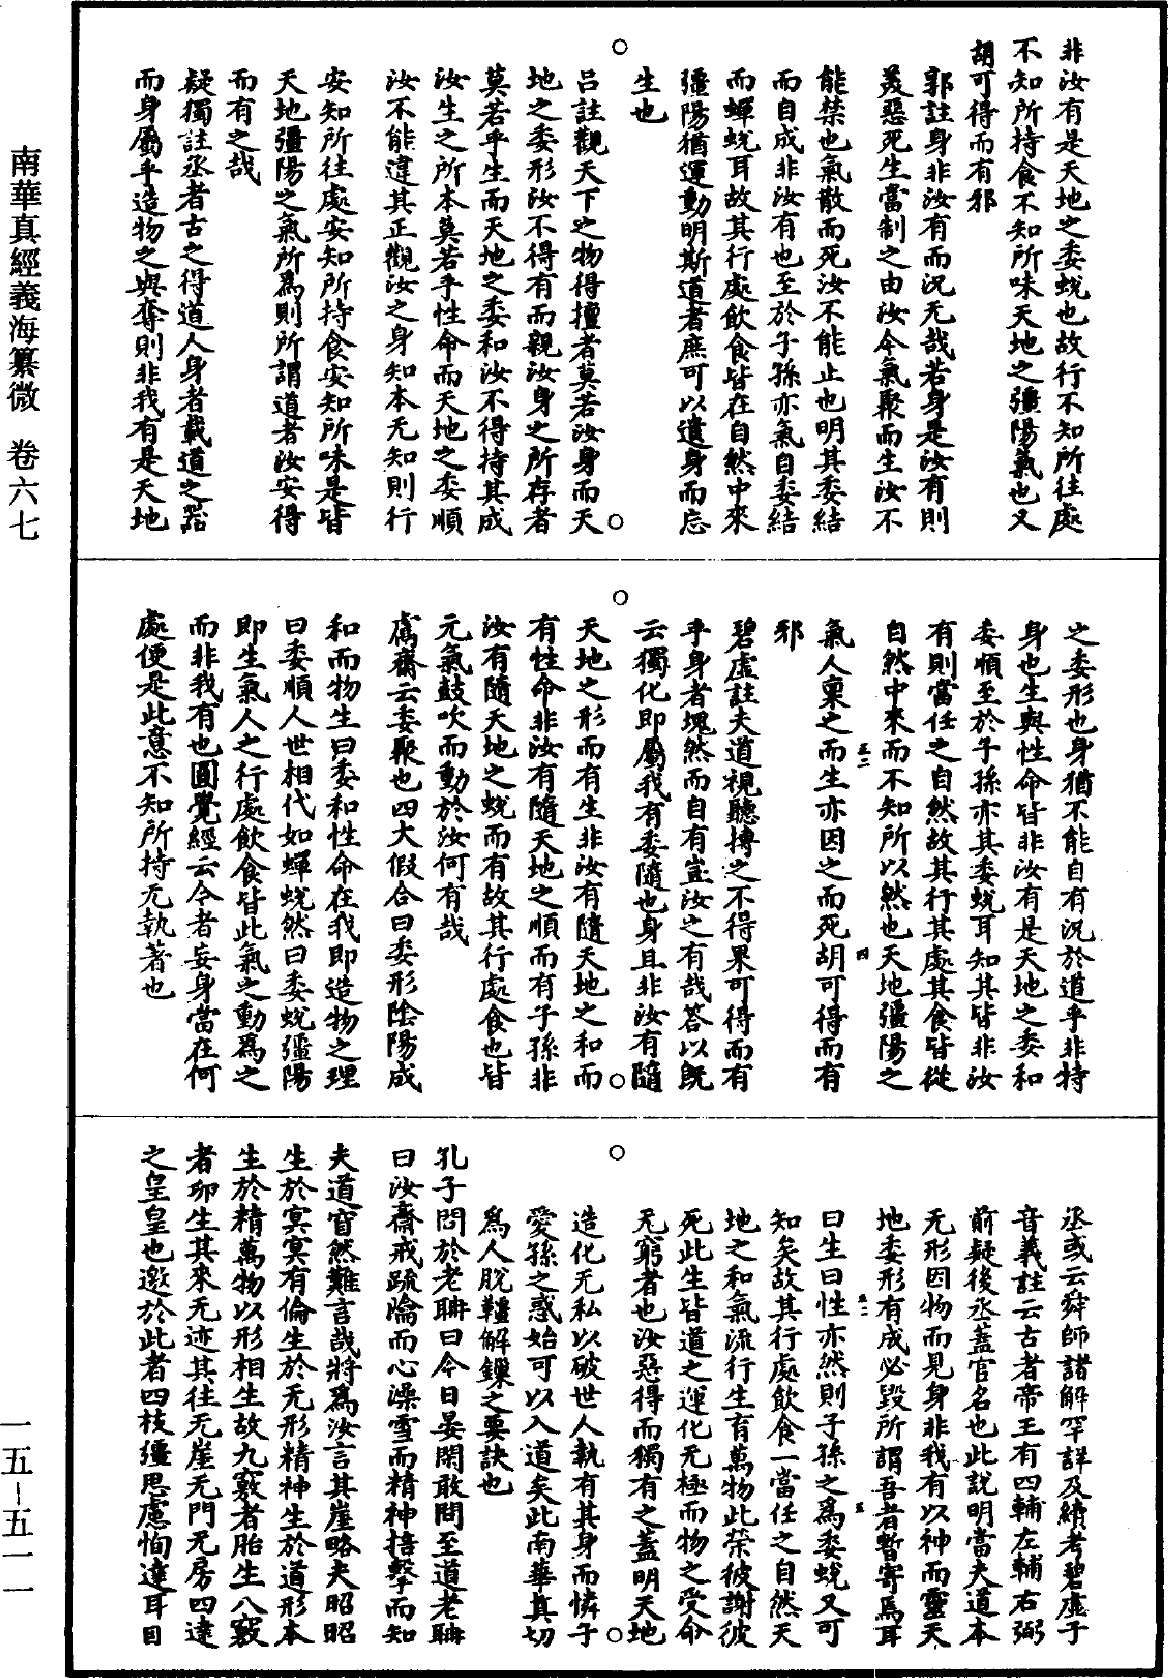 非汝有是天地之委蛻也故行不知所往處
不知所持食不知所味天地之彊陽氣也又
胡可得而有邪
郭註身非汝有而況无哉若身是汝有則
美惡死生當制之由汝今氣聚而生汝不
能禁也氣散而死汝不能止也明其委結
而自成非汝有也至於子孫亦氣自委結
而蟬蛻耳故其行處飲食皆在自然中來
彊陽猶運動明斯道者庶可以遺身而忘
生也
呂註觀天下之物得擅者莫若汝身而天
地之委形汝不得有而親汝身之所存者
莫若乎生而天地之委和汝不得持其成
汝生之所本莫若乎性命而天地之委順
汝不能違其正觀汝之身知本无知則行
安知所往處安知所持食安知所味是皆
天地彊陽之氣所為則所謂道者汝安得
而有之哉
疑獨註丞者古之得道人身者載道之器
而身屬乎造物之與奪則非我有是天地
之委形也身猶不能自有況於道乎非特
身也生與性命皆非汝有是天地之委和
委順至於子孫亦其委蛻耳知其皆非汝
有則當任之自然故其行其處其食皆從
自然中來而不知所以然也天地彊陽之
氣人稟之而生亦因之而死胡可得而有
邪
碧虛註夫道視聽摶之不得果可得而有
乎身者塊然而自有豈汝之有哉答以既
云獨化即屬我有委隨也身且非汝有隨
天地之形而有生非汝有隨天地之和而
有性命非汝有隨天地之順而有子孫非
汝有隨天地之蛻而有故其行處食也皆
元氣鼓吹而動於汝何有哉
鬳齋云委聚也四大假合曰委形陰陽成
和而物生曰委和性命在我即造物之理
曰委順人世相代如蟬蛻然曰委蛻彊陽
即生氣人之行處飲食皆此氣之動為之
而非我有也圓覺經云今者妄身當在何
處便是此意不知所持无執著也
丞或云舜師諸解罕詳及續考碧虛子
音義註云古者帝王有四輔左輔右弼
前疑後丞蓋官名也此說明當夫道本
无形因物而見身非我有以神而靈天
地委形有成必毀所謂吾者暫寄焉耳
曰生曰性亦然則子孫之為委蛻又可
知矣故其行處飲食一當任之自然天
地之和氣流行生育萬物此榮彼謝彼
死此生皆道之運化无極而物之受命
无窮者也汝惡得而獨有之蓋明天地
造化无私以破世人執有其身而憐子
愛孫之惑始可以入道矣此南華真切
為人脫韁解鏁之要訣也
孔子問於老聃曰今日晏閑敢問至道老聃
曰汝齋戒疏瀹而心澡雪而精神掊擊而知
夫道窅然難言哉將為汝言其崖略夫昭昭
生於冥冥有倫生於无形精神生於道形本
生於精萬物以形相生故九竅者胎生八竅
者卵生其來无迹其往无崖无門无房四達
之皇皇也邀於此者四枝彊思慮恂達耳目
南華真經義海纂微 卷六七
一五-五一一